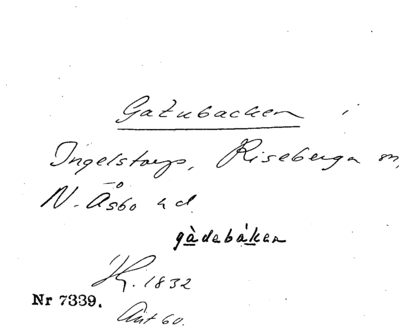 Gatubacken i
Ingelstorp, Riseberga sn,
N. Åsbo hd.
gàdebáken
Hg. 1832
Nr 7339.
Ant 60.